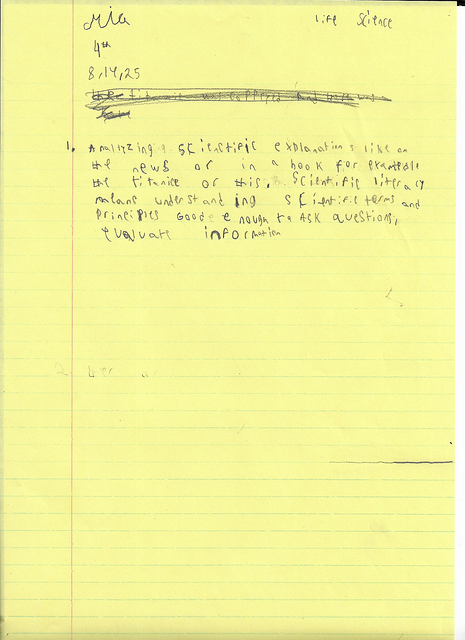 Mia Life Science
4th
8,14,25
1. Analyzing scienctific explanations like on
the news or in a book for example
the titanice or this, Scientific literacy
means understanding scientific terms and
principles Goode enough to ASK questions,
evaluate information
2.